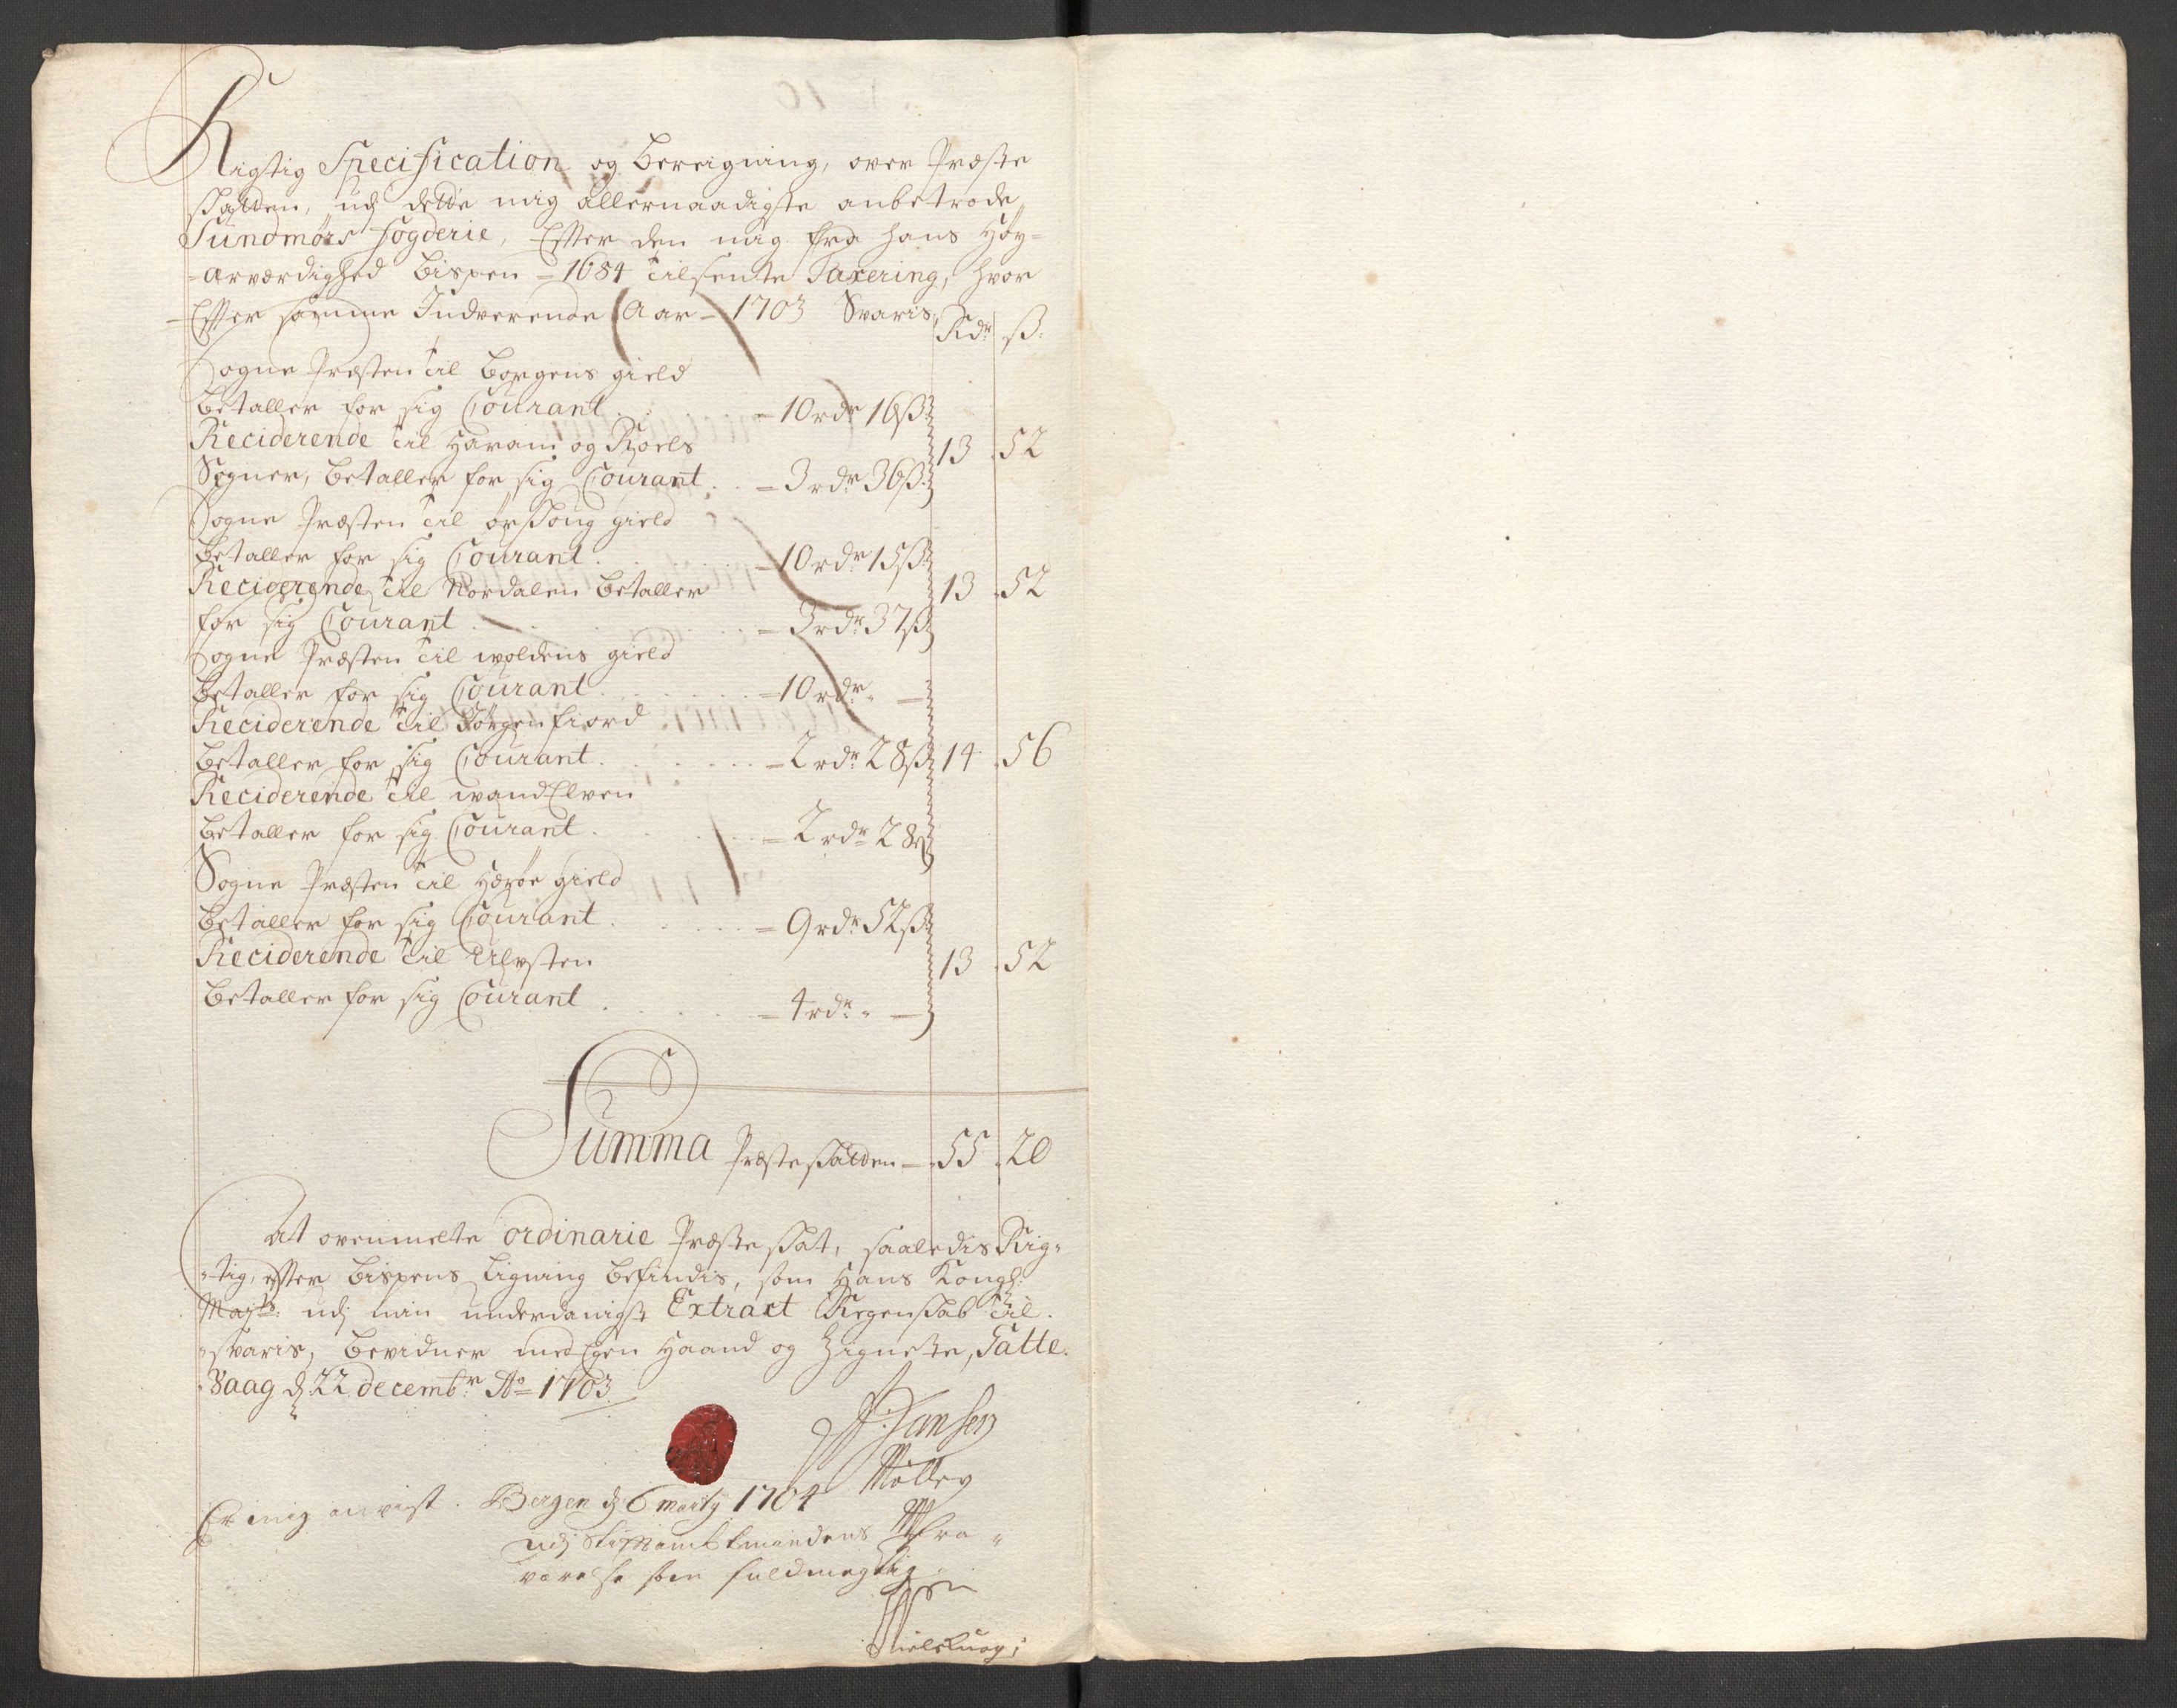 Rigtig Specification og bereigning, over Præste
skatten, udj dette mig allernaadigste anbetrode
Sundmørs fogderie, Efter den mig fra hans Høy-
-arværdighed bispen - 1684 tilsente Taxering, hvor
Efter samme Indverende Aar - 1703 Svaris,
Rdr ß:
Sogne Præsten til borgens gield
betaller for sig Courant . . . - 10 rdr 16 ß
Reciderende til Haram og
Sogner, betaller for sig Courant . . - 3 rdr 36 ß 13 . 52
Sogne Præsten til ørskoug gield
betaller for sig Courant . . . - 10 rdr 15 ß
Reciderende til Nordalen betaller 13 . 52
for sig Courant . . . - 3 rdr 37 ß
Sogne Præsten til woldens gield
betaller for sig Courant . . . - 10 rdr " -
Reciderende til Jørgenfiord
betaller for sig Courant . . . - 2 rdr 28 ß 14 . 56
Reciderende til wandElven
betaller for sig Courant . . . - 2 rdr 28 ß
Sogne Præsten til Herøe gield
betaller for sig Courant . . . - 9 rdr 52 ß
Reciderende til Ulvsten 13 . 52
betaller for sig Courant . . . - 4 rdr " -
Summa Præsteskatten - 55 . 20
At ovenmelte ordinarie Præsteskat, saaledis Rig-
-tig, efter bispens ligning befindis, som Hans Kongl:
Majts: udj min underdanigst Extract Regenskab til-
-svaris, bevidner med Egen Haand og Zignette, Satte-
-Vaag d 22 decembr Ao 1703
Hansen
Møller
Er mig anvist. Bergen d 6 marty 1704
udj Stiftamtmandens Fra-
værelse som fuldmegtig